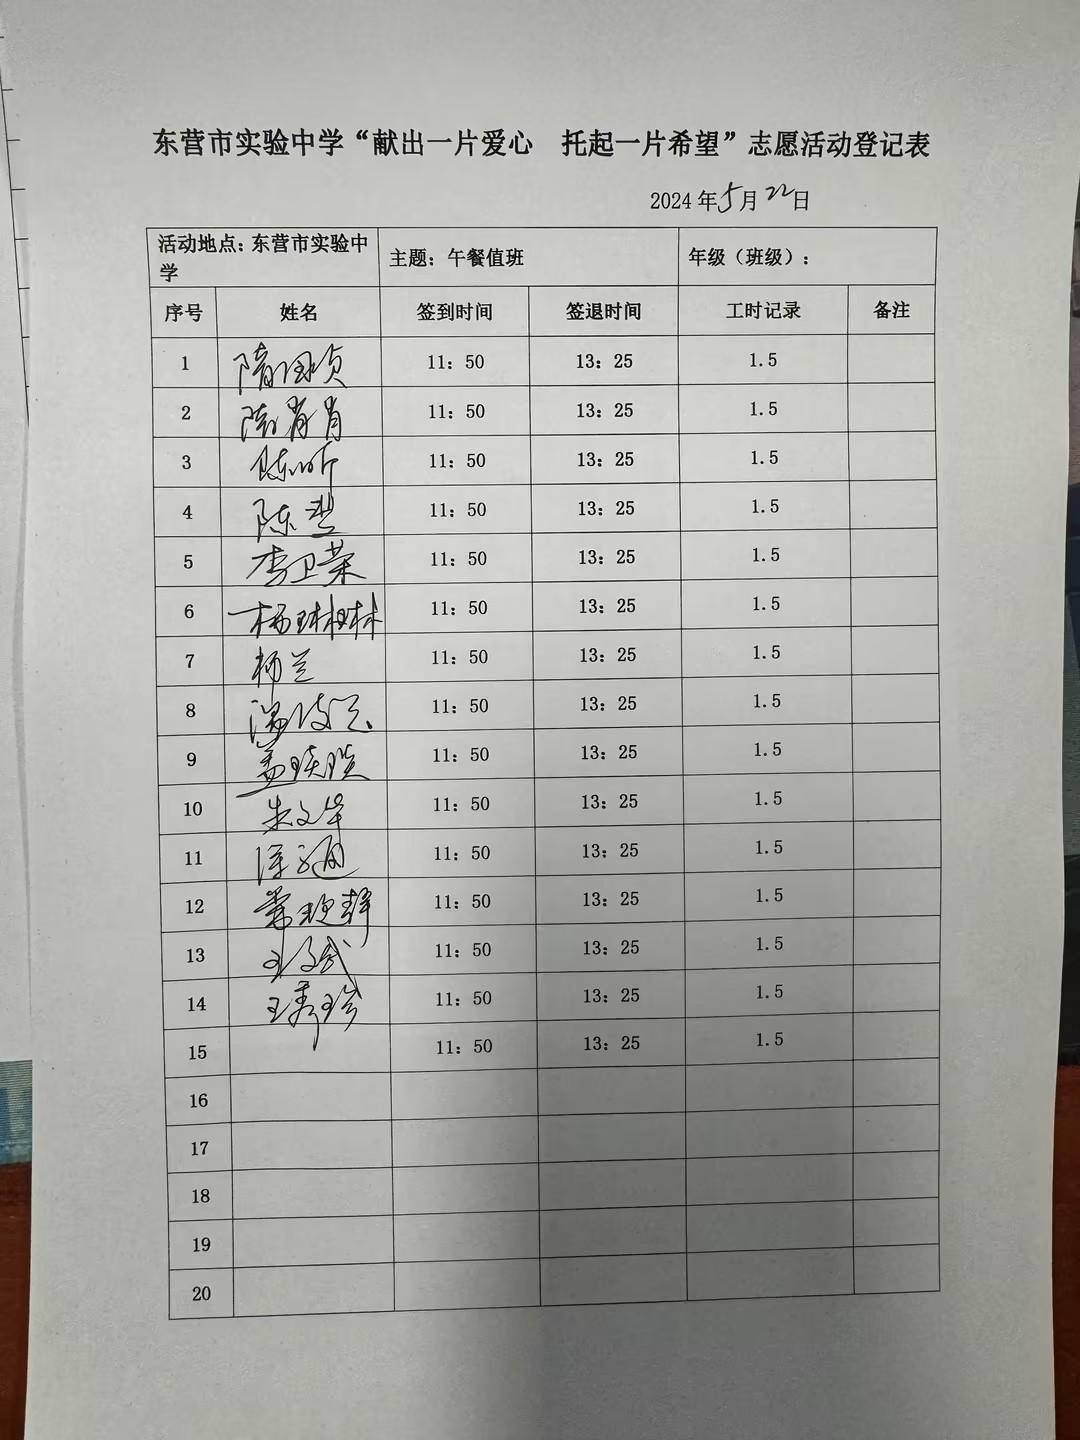 东营市实验中学“献出一片爱心 托起一片希望”志愿活动登记表
2024年5月22日
活动地点：东营市实验中学 主题：午餐值班 年级（班级）：
序号 姓名 签到时间 签退时间 工时记录 备注
1 隋国贞 11：50 13：25 1.5
2 陈肖肖 11：50 13：25 1.5
3 陈昕 11：50 13：25 1.5
4 陈 11：50 13：25 1.5
5 李卫荣 11：50 13：25 1.5
6 杨琳琳 11：50 13：25 1.5
7 杨兰 11：50 13：25 1.5
8 11：50 13：25 1.5
9 孟 11：50 13：25 1.5
10 朱文华 11：50 13：25 1.5
11 11：50 13：25 1.5
12 常艳静 11：50 13：25 1.5
13 王 11：50 13：25 1.5
14 王秀珍 11：50 13：25 1.5
15 11：50 13：25 1.5
16
17
18
19
20